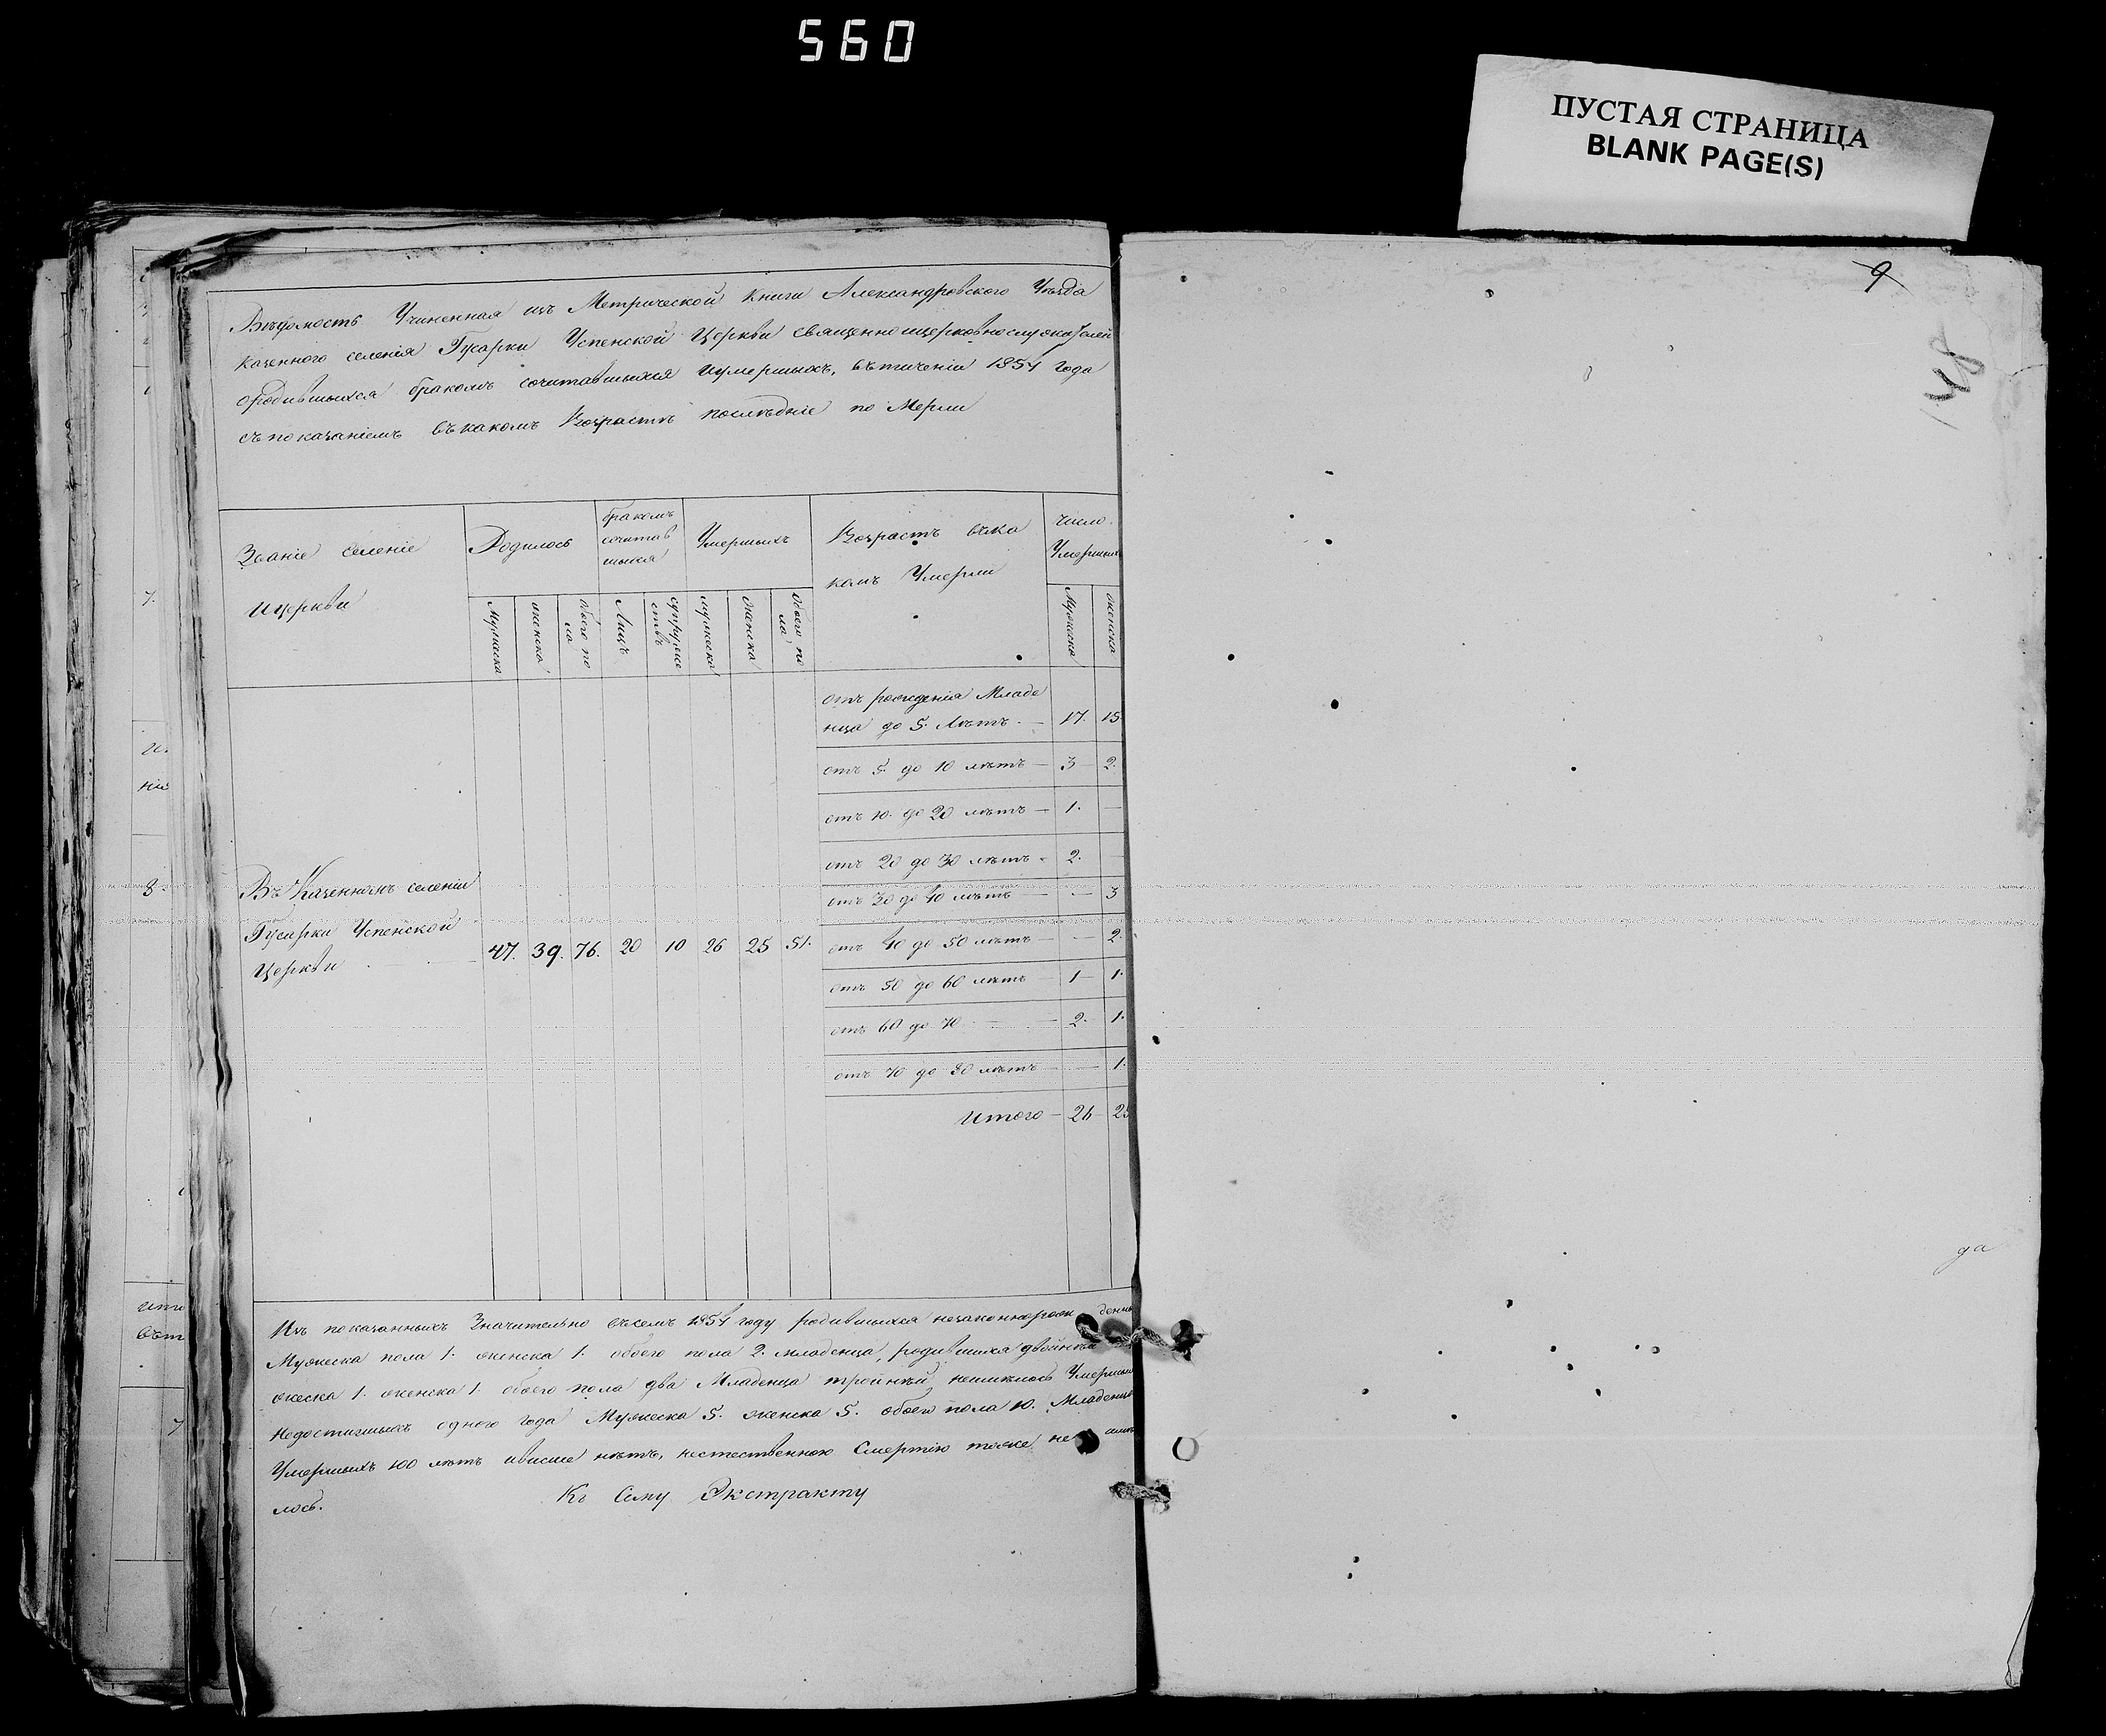 560
ПУСТАЯ СТРАНИЦА
BLANK PAGE(S)
9
Вѣдомость Учиненная изъ Метрической Книги Александровского Уѣзда
казенного селенія Гусарки Успенской Церкви священноицерковнослужителей
ородившихся бракомъ сочитавшихся иумершихъ, втеченіи 1854 года
съпоказаніемъ въкакомъ Возрастѣ послѣдніе по Мерли
Званіе селеніе
ицеркви
Родилось
бракомъ
сочитав
шихся
Умершихъ
Возрастъ вѣка
комъ Умерли
число
Умершихъ
Мужеска
женска
обоего по
ла
Лицъ
супруже
ствъ
мужеска
женска
обоего по
ла
Мужеска
женска
отъ рожденія Младе
нца до 5. Лѣтъ 17. 15.
отъ 5. до 10 лѣтъ 3 2.
отъ 10. до 20 лѣтъ 1. —
отъ 20 до 30 лѣтъ 2. —
отъ 30 до 40 лѣтъ — 3
отъ 40 до 50 лѣтъ — 2.
отъ 50 до 60 лѣтъ 1 1.
отъ 60 до 70 2. 1.
отъ 70 до 80 лѣтъ — 1.
Итого 26 25
Въ Казенномъ селеніи
Гусарки Успенской
Церкви 47. 39. 76. 20 10 26 25 51.
Изъ показанныхъ Значительно всемъ 1854 году родившихся незаконнорожденны
Мужеска пола 1. женска 1. обоего пола 2. младенца, родившихся двойнѣ
жеска 1. женска 1. обоего пола два Младенца тройней неимѣлось Умерших
Недостигшихъ одного года Мужеска 5. женска 5. обоего пола 10. Младенце
Умершихъ 100 лѣтъ ивисше нѣтъ, неестественною Смертію также не
лось.
Къ Сему Экстракту
да
7.
8.